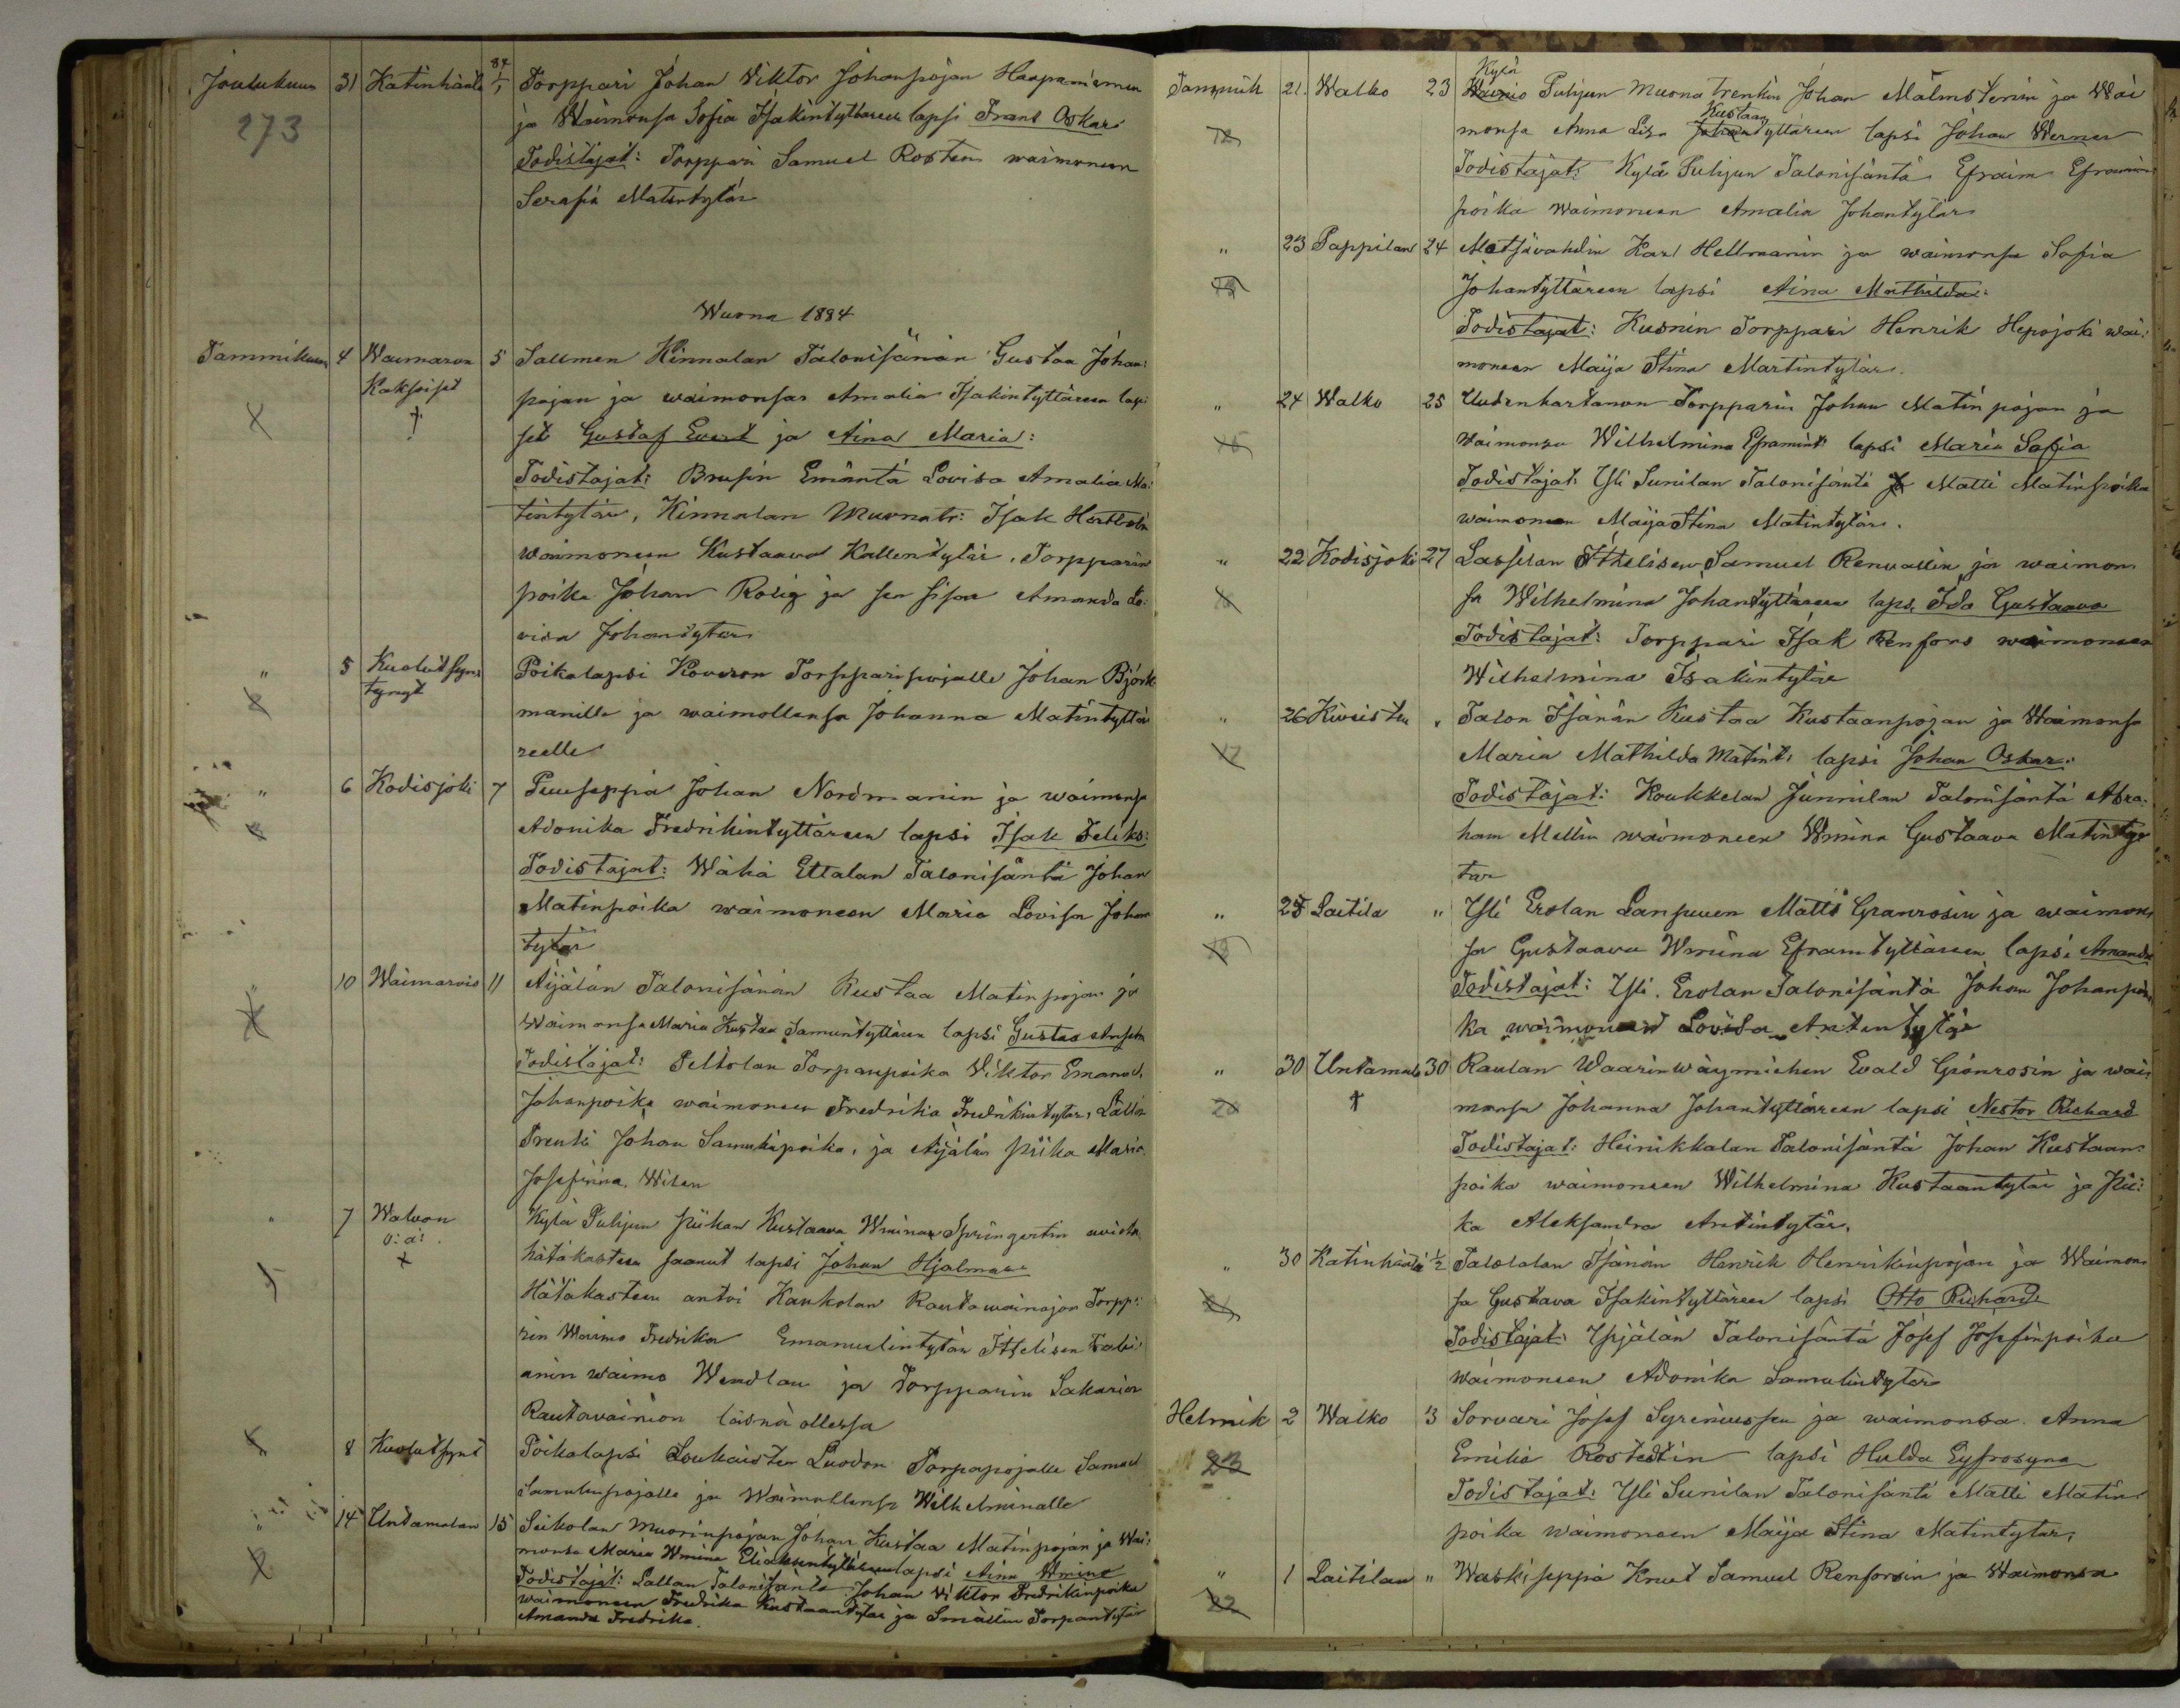 Joulukuun 31 Katinhäntä 84 1/1 Torppari Johan Viktor Johanpojan Haapaniemen
273 ja Waimonsa Sofia Isakintyttäreen lapsi Frans Oskar
Todistajat: Torppari Samuel Rosten waimoneen
Serafia Matintytär
Wuonna 1884
Tammikuun 4 Waimaron 5 Salmen Kinnalan Talonisänän Gustaa Johan:
Kaksoiset pojan ja waimonsa Amalia Isakintyttäreen lap:
set Gustaf Evert ja Aina Maria:
Todistajat: Brusin Emäntä Lovisa Amalia Ma:
tintytär, Kinnalan Muonatr: Isak
waimoneen Kustaava Kallentytär, Torpparin
poika Johan Rolig ja sen sisar Amanda Lo:
visa Johantytär
" 5 Kuolut syn:
tynyt Poikalapsi Kovron Torpparipojalle Johan Björk
manille ja waimollensa Johanna Matintyttä
reelle
" 6 Kodisjoki 7 Puuseppä Johan Nordmanin ja waimonsa
Adonika Fredrikintyttäreen lapsi Isak Feliks:
Todistajat: Wähä Ettalan Talonisäntä Johan
Matinpoika waimoneen Maria Lovisa Johan
tytär
" 10 Waimarois 11 Äijälän Talonisänän Kustaa Matinpojan ja
Waimonsa Maria Kustaa Samuintyttären lapsi Gustaa
Todistajat: Peltolan Torpanpoika Viktor Emanuel
Johanpoika waimoneen Fredrika Fredrikintytär,
Trenki Johan Samulinpoika, ja Äijälän piika Maria
Josefiina Wiken
" 7 Walvon Kylä Puhjun piikan Kustaava Wmina Springertin
o: a: hätäkasteen saanut lapsi Johan Hjalmar
Hätäkasteen antoi Kaukolan Rautawainajon Torppa:
rin Waimo Fredrika Emanuelintytär Itselisen
anin waimo Wendlan ja Torpparin Sakarian
Rautavainion läsnä ollessa
8 Kuolut synt Poikalapsi Loukaisten Luodon Torpapojalle Samuel
Samulinpojalle ja Waimollensa Wilhelminalle
" 14 Untamalan 15 Seikolan Muorinpojan Johan Kustaa Matinpojan ja Wai:
monsa Maria Wmina lapsi Aina Wmina
Todistajat: Lallan Talonisäntä Johan Viktor Fredrikinpoika
waimoneen Fredrika Kustaantytär ja Smällin Torpantytär
Amanda Fredrika.
Kylä
Tammik 21. Walko 23 Puhjun Muonatrenkin Johan Malmstenin ja Wai
Kustaan
12 monsa Anna Lisa tyttäreen lapsi Johan Werner
Todistajat: Kylä Puhjun Talonisäntä Efraim Eframin
poika waimoneen Amalia Johantytär
" 23 Pappilan 24 Metsävahdin Karl Hellmanin ja waimonsa Sofia
Johantyttäreen lapsi Aina Mathilda:
Todistajat: Kusnin Torppari Henrik Hepojoki wai:
moneen Maija Stina Martintytär.
" 24 Walko 25 Uudenkartanon Torpparin Johan Matinpojan ja
Waimonsa Wilhelmina Eframint: lapsi Maria Sofia
Todistajat: Yli Sunilan Talonisäntä Matti Matinpoika
waimoneen Maija Stina Matintytär.
" 22 Kodisjoki 27 Lassilan Itselisen Samuel Renvallin ja waimon
sa Wilhelmina Johantyttäreen lapsi Ida Gustaava
Todistajat: Torppari Isak Renfors waimoneen
Wilhelmina Isakintytär
" 26 Kivisten " Talon Isänän Kustaa Kustaanpojan ja Waimonsa
17 Maria Mathilda Matint: lapsi Johan Oskar:
Todistajat: Koukkelan Junnilan Talonisäntä Abra:
ham Mellin waimoneen Wmina Gustaava Matinty
tär
" 28 Laitila " Yli Erolan Lanpuun Matti Granrosin ja waimon
sa Gustaava Wmina Eframtyttäreen lapsi Amanda
Todistajat: Yli Erolan Talonisäntä Johan Johanpoi
ka waimoneen Lovisa Antintytär
" 30 Untamala 30 Raulan Waarinwäymiehen Evald Grönrosin ja wai:
20 monsa Johanna Johantyttäreen lapsi Nestor Richard
Todistajat: Heinikkalan Talonisäntä Johan Kustaan:
poika waimoneen Wilhelmina Kustaantytär ja Pii:
ka Aleksandra Antintytär.
" 30 Katinhäntä 1/2 Talolalan Isänän Henrik Henrikinpojan ja Waimon
sa Gustava Isakintyttäreen lapsi Otto Richard
Todistajat: Ypjälän Talonisäntä Josef Josefinpoika
waimoneen Adonika Samulintytär
Helmik 2 Walko 3 Sorvari Josef Syreniussen ja waimonsa Anna
23 Emilia Rostedtin lapsi Hulda Eyfrosyna
Todistajat: Yli Sunilan Talonisäntä Matti Matin
poika waimoneen Maija Stina Matintytär,
" 1 Laitilan " Waskiseppä Knut Samuel Renforsin ja Waimonsa
22